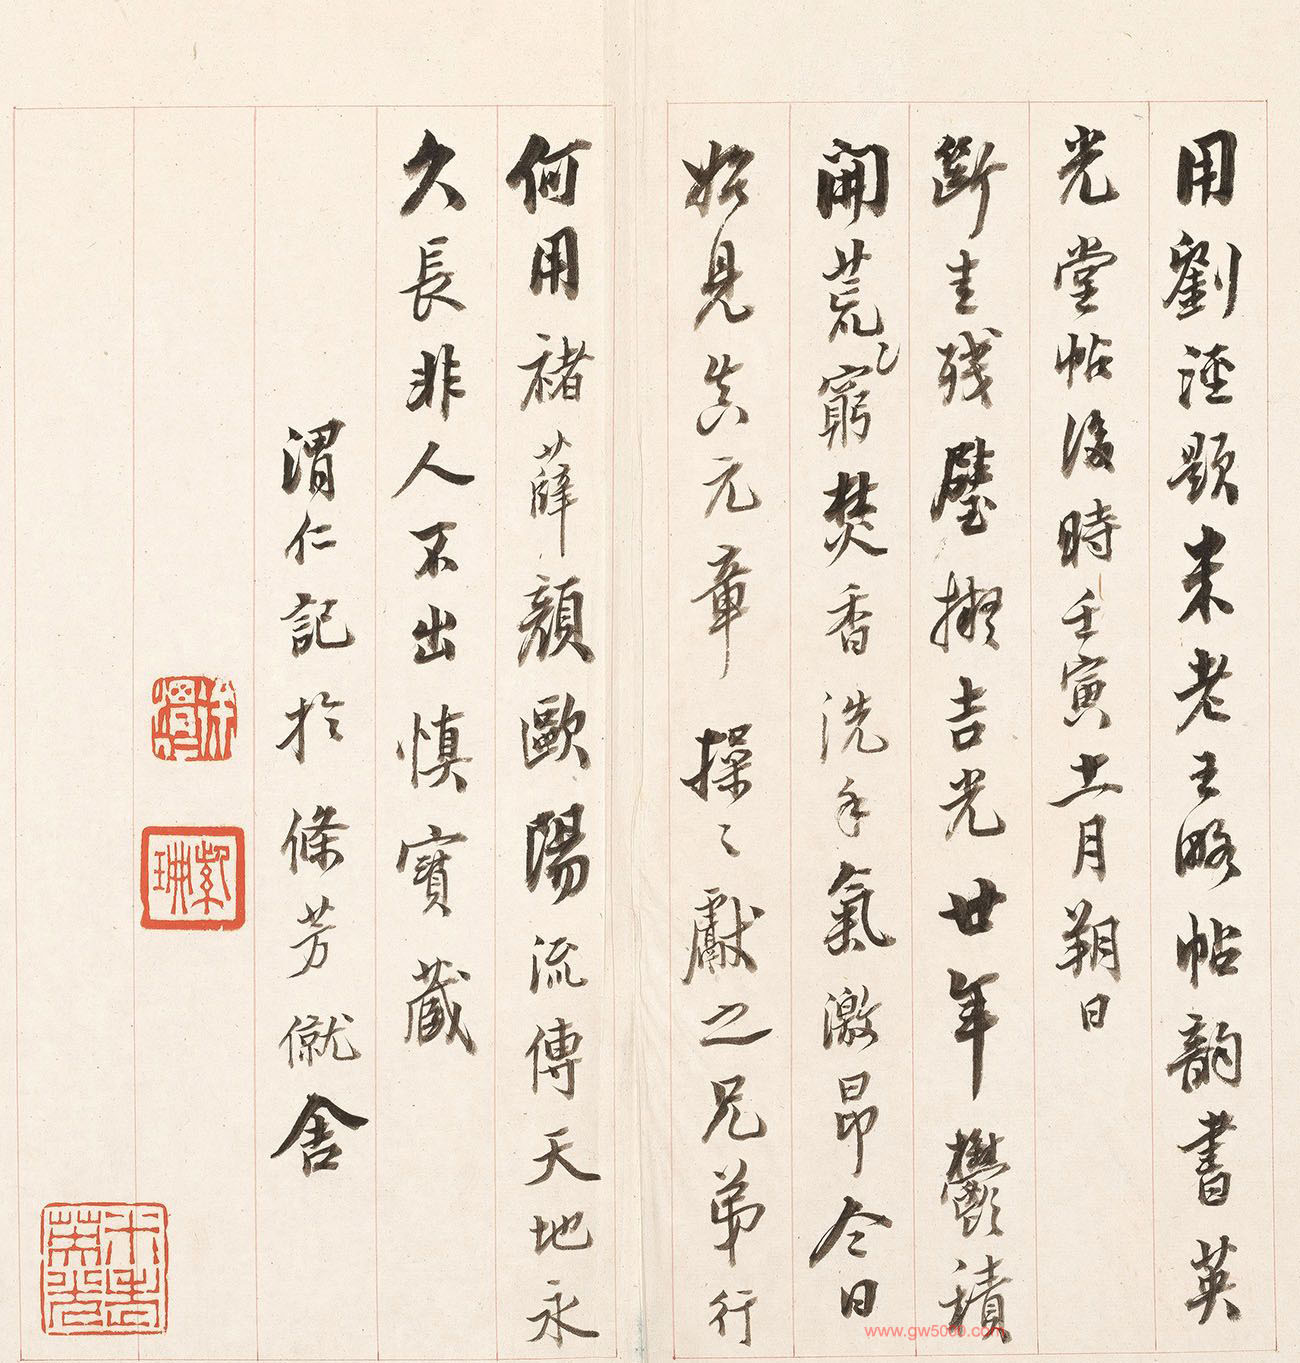 用劉涇題米老王略帖韵書英
光堂帖後時壬寅十一月朔日
斷圭殘璧撫吉光廿年鬱積
開荒〻窮焚香洗手氣激昂今日
始見真元章操〻獻之兄弟行
何用褚薛顏歐陽流傳天地永
久長非人不出慎寶藏
渭仁記於條芳僦舍
徐渭仁
紫珊
www.gw5000.com